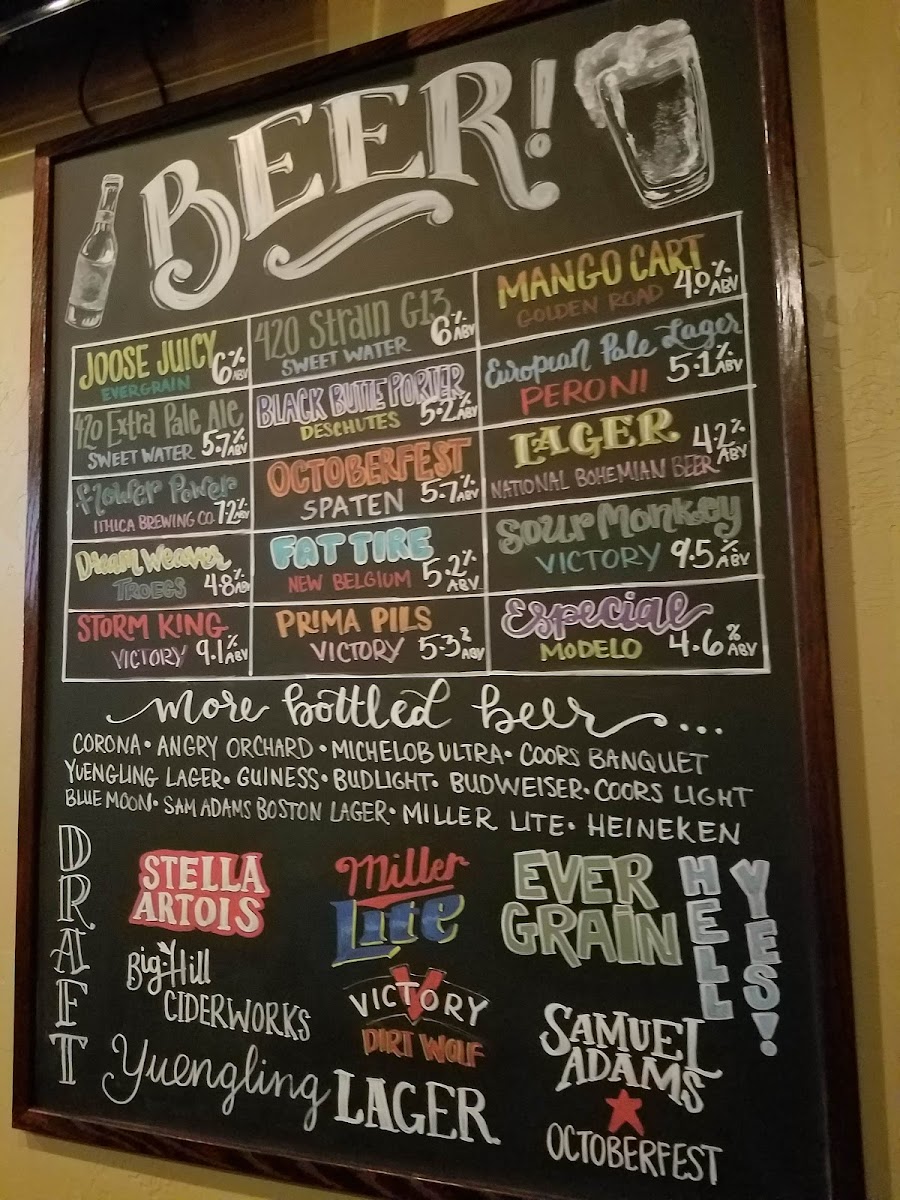 BEER!
JOOSE JUICY
EVERGRAIN
6% ABV
420 Extra Pale Ale
SWEET WATER 5.7% ABV
Flower Power
ITHICA BREWING CO. 7.2% ABV
Dream Weaver
TROEGS 4.8% AB
STORM KING
VICTORY 9.1% ABV
420 Strain G13
SWEET WATER
6% ABV
BLACK BUTTE PORTER
DESCHUTES 5.2% ABV
OCTOBERFEST
SPATEN 5.7% ABV
FAT TIRE
NEW BELGIUM 5.2% ABV
PRIMA PILS
VICTORY 5.3% ABV
MANGO CART
GOLDEN ROAD 4.0% ABV
European Pale Lager
PERONI 5.1% ABV
LAGER
NATIONAL BOHEMIAN BEER 4.2% ABV
Sour Monkey
VICTORY 9.5% ABV
Especial
MODELO 4.6% ABV
more bottled beer...
CORONA • ANGRY ORCHARD • MICHELOB ULTRA • COORS BANQUET
YUENGLING LAGER • GUINESS • BUDLIGHT • BUDWEISER • COORS LIGHT
BLUE MOON • SAM ADAMS BOSTON LAGER • MILLER LITE • HEINEKEN
DRAFT
STELLA
ARTOIS
Miller
Lite
EVER
GRAIN
HELL
YES!
Big Hill
CIDERWORKS
VICTORY
DIRT WOLF
SAMUEL
ADAMS
OCTOBERFEST
Yuengling LAGER